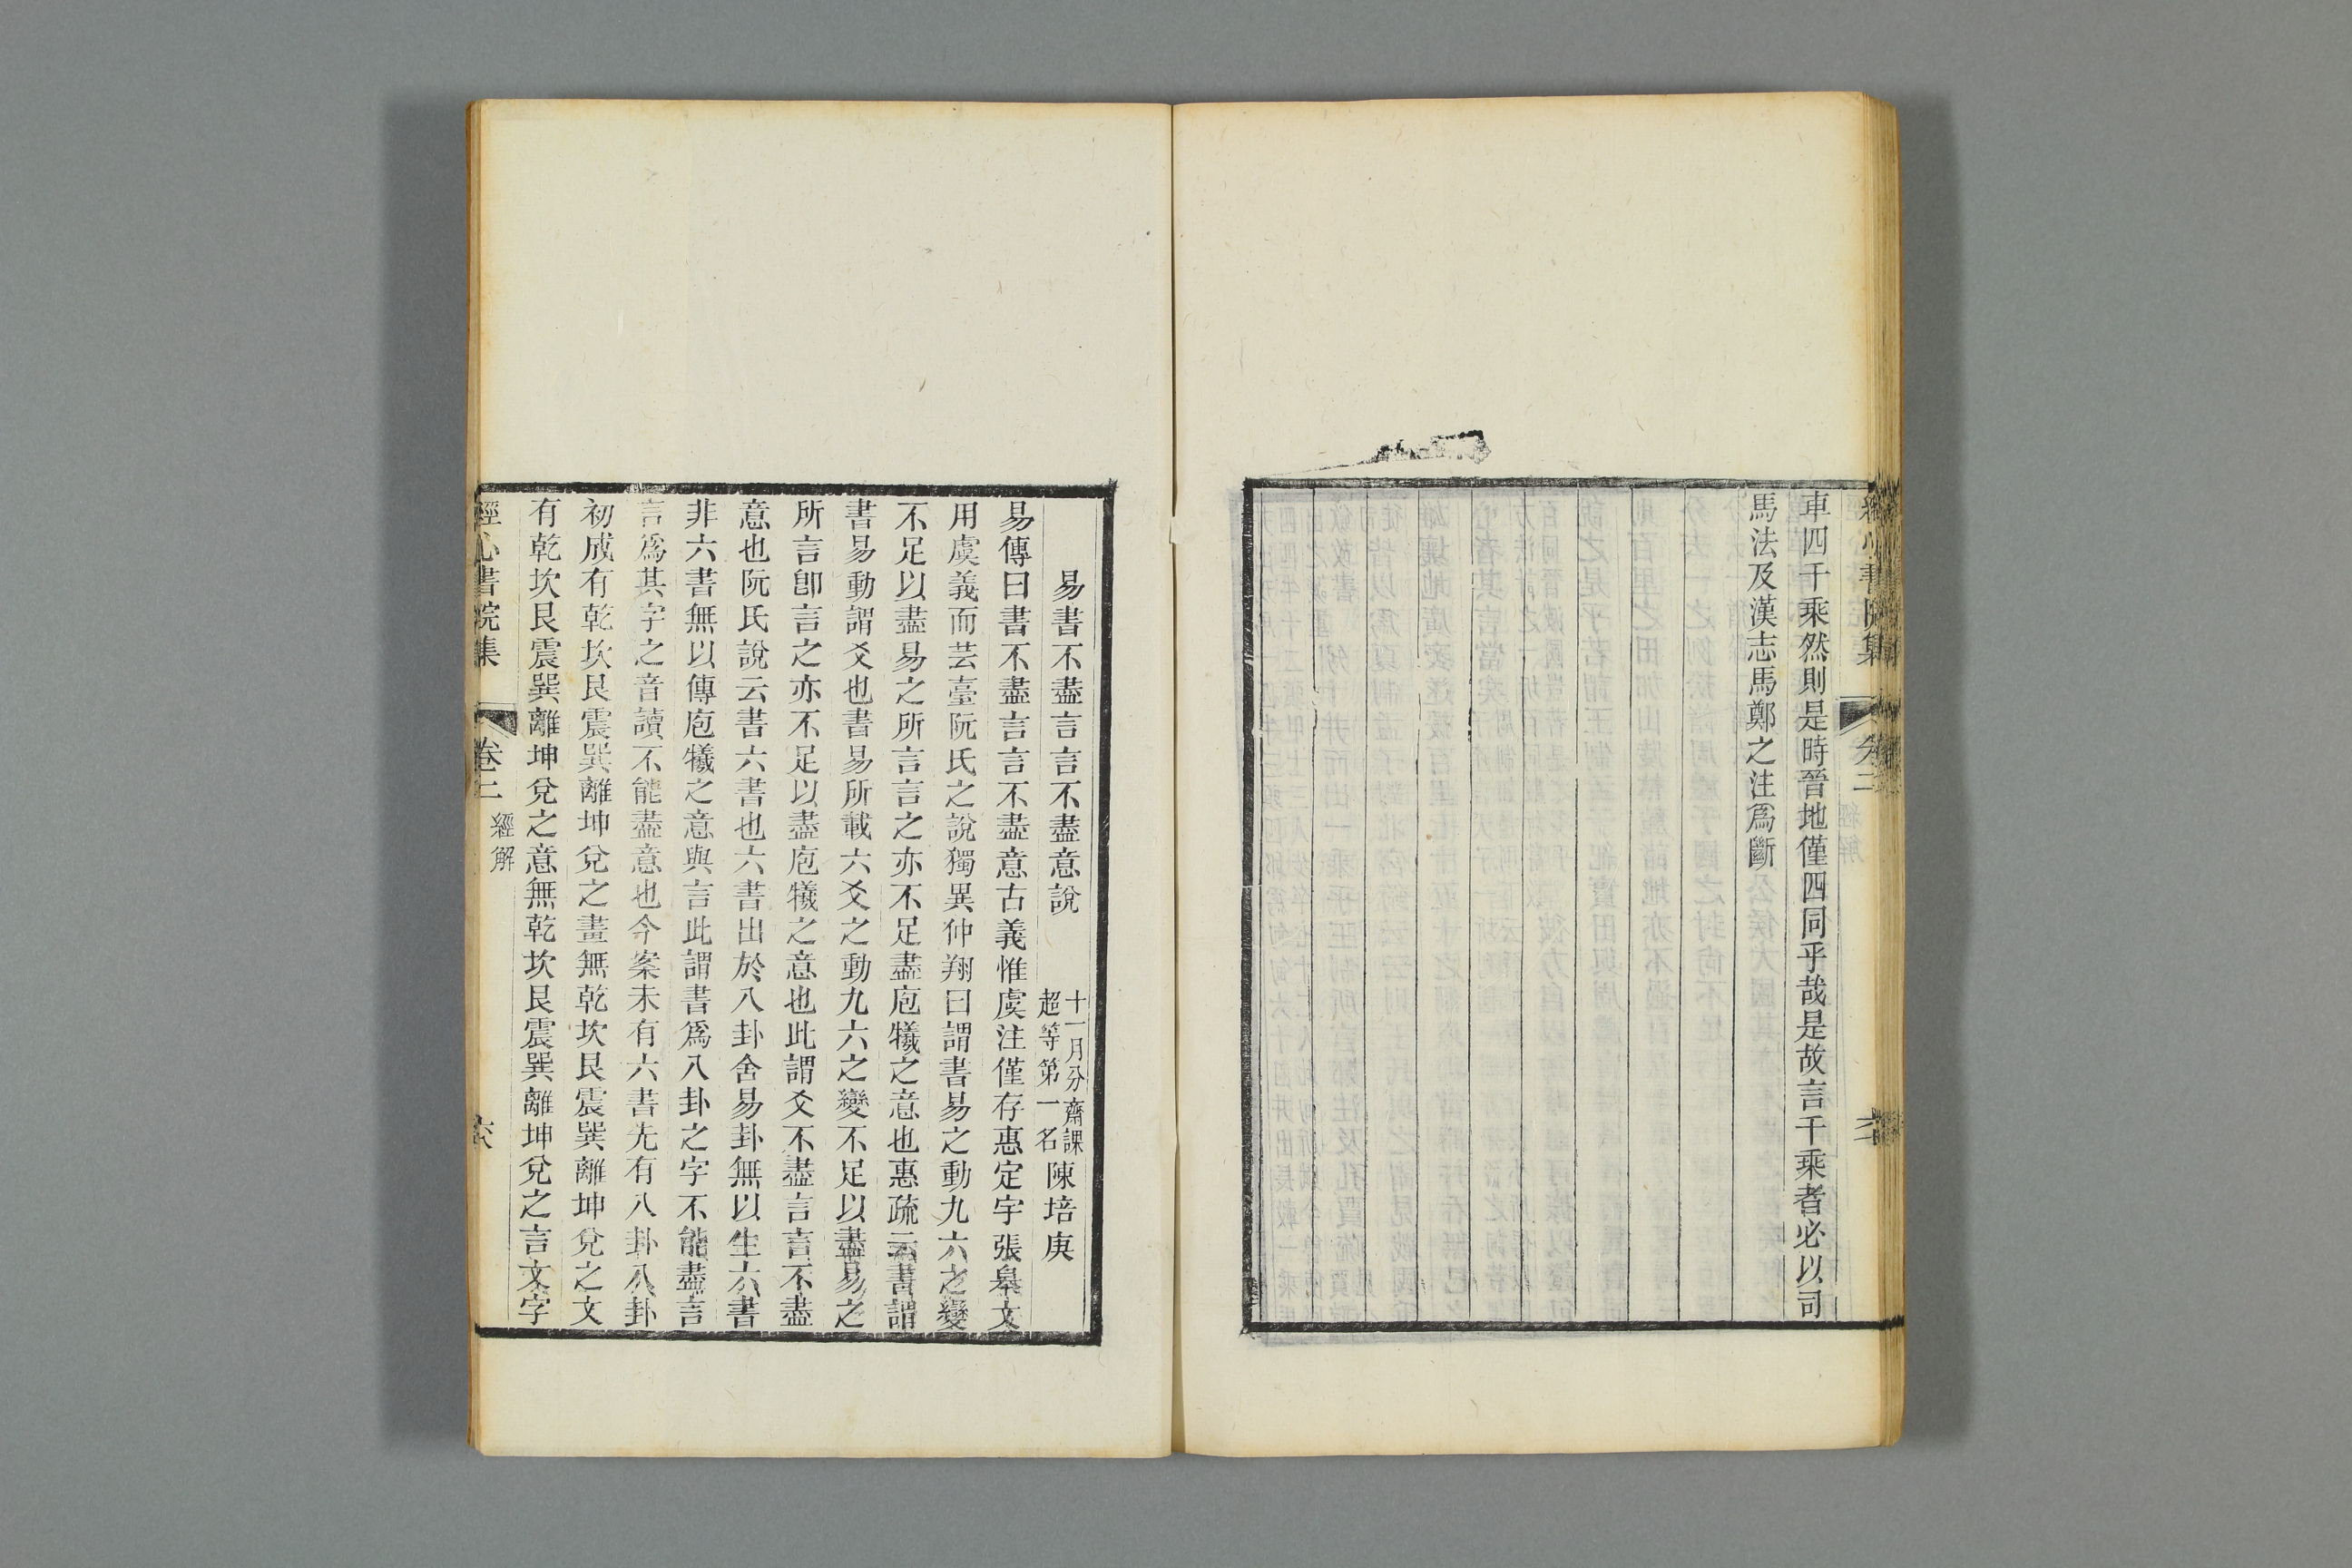 車四千乘然則是時晉地僅四同乎哉是故言千乘者必以司
馬法及漢志馬鄭之注爲斷
易書不盡言言不盡意說
十一月分齋課
超等第一名
陳培庚
易傳曰書不盡言言不盡意古義惟虞注僅存惠定宇張皋文
用虞義而芸臺阮氏之說獨異仲翔曰謂書易之動九六之變
不足以盡易之所言言之亦不足盡庖犧之意也惠疏云書謂
書易動謂爻也書易所載六爻之動九六之變不足以盡易之
所言卽言之亦不足以盡庖犧之意也此謂爻不盡言言不盡
意也阮氏說云書六書也六書出於八卦舍易卦無以生六書
非六書無以傳庖犧之意與言此謂書爲八卦之字不能盡言
言爲其字之音讀不能盡意也今案未有六書先有八卦八卦
初成有乾坎艮震巽離坤兌之畫無乾坎艮震巽離坤兌之文
有乾坎艮震巽離坤兌之意無乾坎艮震巽離坤兌之言文字
經心書院集
卷二
經解
六